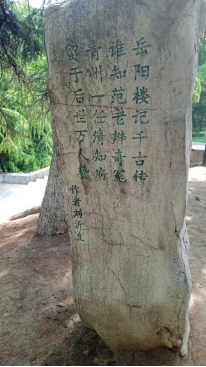 岳阳楼记千古传
谁知范老辨奇冤
青州一任清知府
留于后世万人赞
作者刘沂生